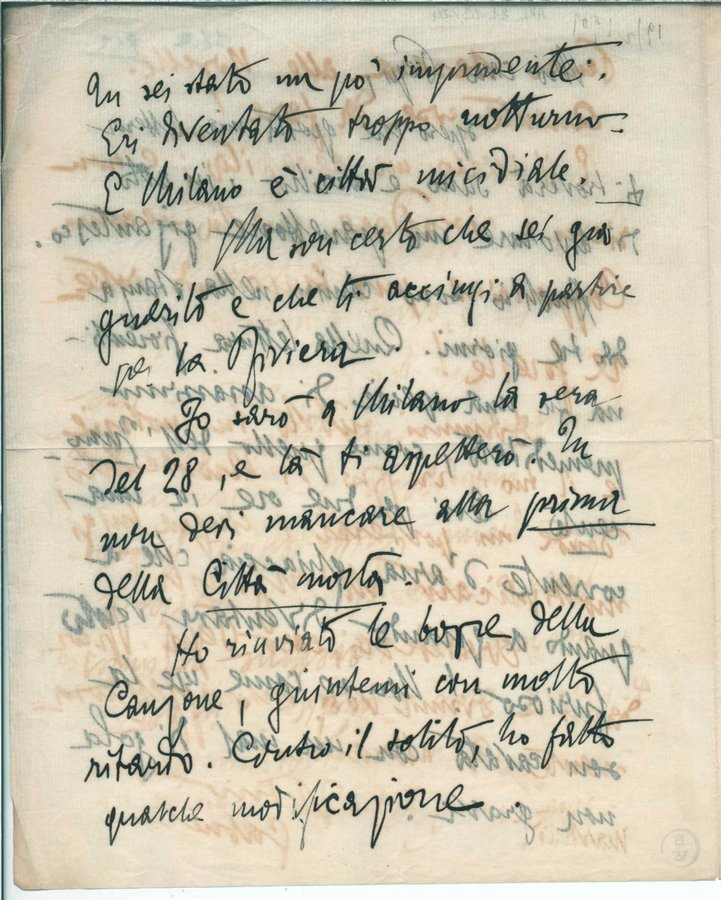 Tu sei stato un po' imprudente.
Eri diventato troppo notturno.
E Milano è città micidiale.
Ma son certo che sei già
guarito e che ti accingi a partire
per la Riviera.
Io sarò a Milano la sera
del 28, e là ti aspetterò. Tu
non devi mancare alla prima
della Città morta.
Ho rinviato le bozze della
Canzone, giuntemi con molto
ritardo. Contro il solito, ho fatto
qualche modificazione.